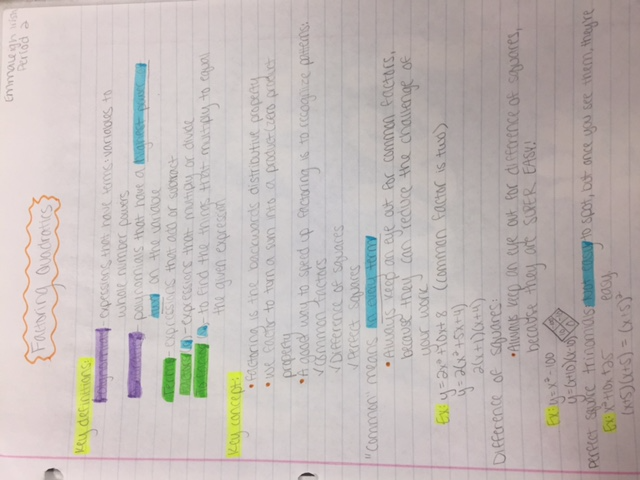 Emmaleigh
Period 2
Factoring Quadratics
Key definitions:
- expressions that have terms: variables to
whole number powers
- polynomials that have a highest power
in the variable
- expressions that add or subtract
- expressions that multiply or divide
- to find the things that multiply to equal
the given expression
Key concept:
• Factoring is the backwards distributive property
• use factor to turn a sum into a product (zero product
property)
• A good way to speed up factoring is to recognize patterns:
√ Common factors
√ Difference of squares
√ Perfect squares
"Common" means in every term
• Always keep an eye out for common factors,
because they can reduce the challenge of
your work
Ex: y = 2x² + 10x + 8 (common factor is two)
y = 2(x² + 5x + 4)
2(x+1)(x+4)
Difference of squares:
• Always keep an eye out for difference of squares,
because they are SUPER EASY!
Ex: y = x² - 100
y = (x+10)(x-10)
perfect square trinomials to spot, but once you see them, they're
easy
Ex: x² + 10x + 25
(x+5)(x+5) = (x+5)²